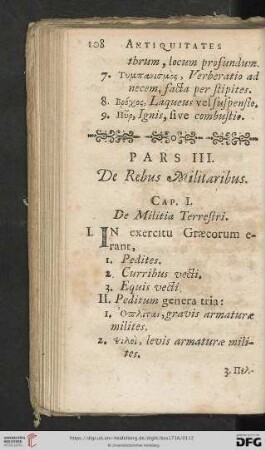 108 ANTIQUITATES
thrum, locum profundum.
7. Τυμπανισμὸς, Verberatio ad
necem, facta per stipites.
8. Βρόχος, Laqueus vel suspensio.
9. Πῦρ, Ignis, sive combustio.
PARS III.
De Rebus Militaribus.
CAP. I.
De Militia Terrestri.
I. IN exercitu Græcorum e-
rant,
1. Pedites.
2. Curribus vecti.
3. Equis vecti.
II. Peditum genera tria:
1. Ὁπλῖται, gravis armaturæ
milites.
2. Ψιλοὶ, levis armaturæ mili-
tes.
3. Πελ-
https://digi.ub.uni-heidelberg.de/diglit/bos1716/0112
© Universitätsbibliothek Heidelberg
DFG